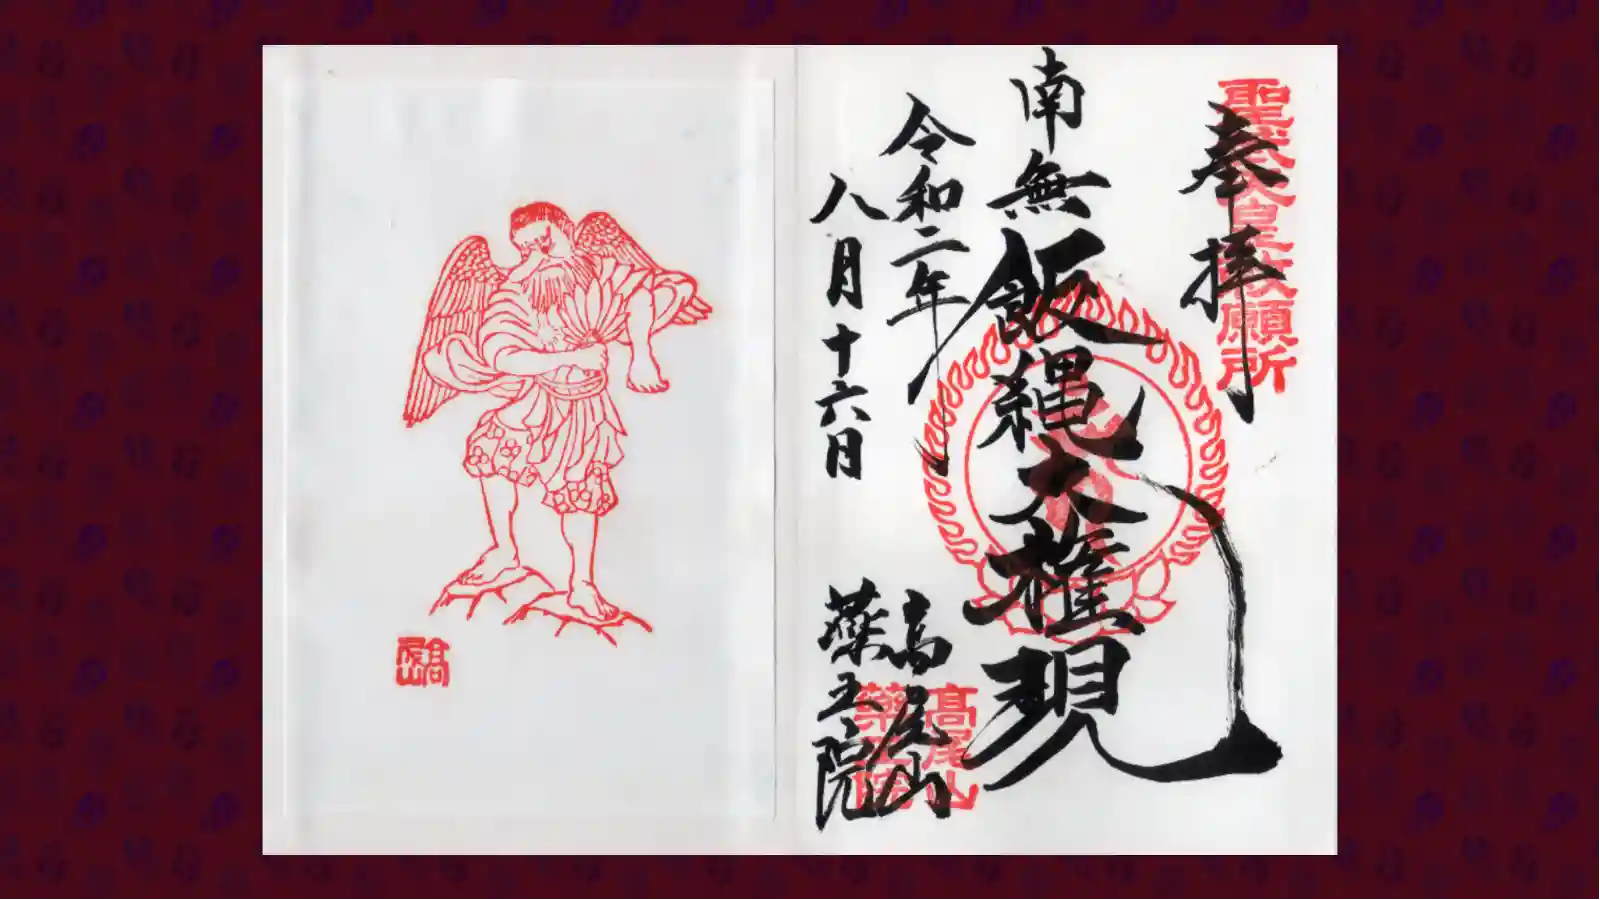 奉拝
聖武天皇敕願所
南無飯縄大権現
令和二年
八月十六日
高尾山
薬王院
高尾山
薬王院
高